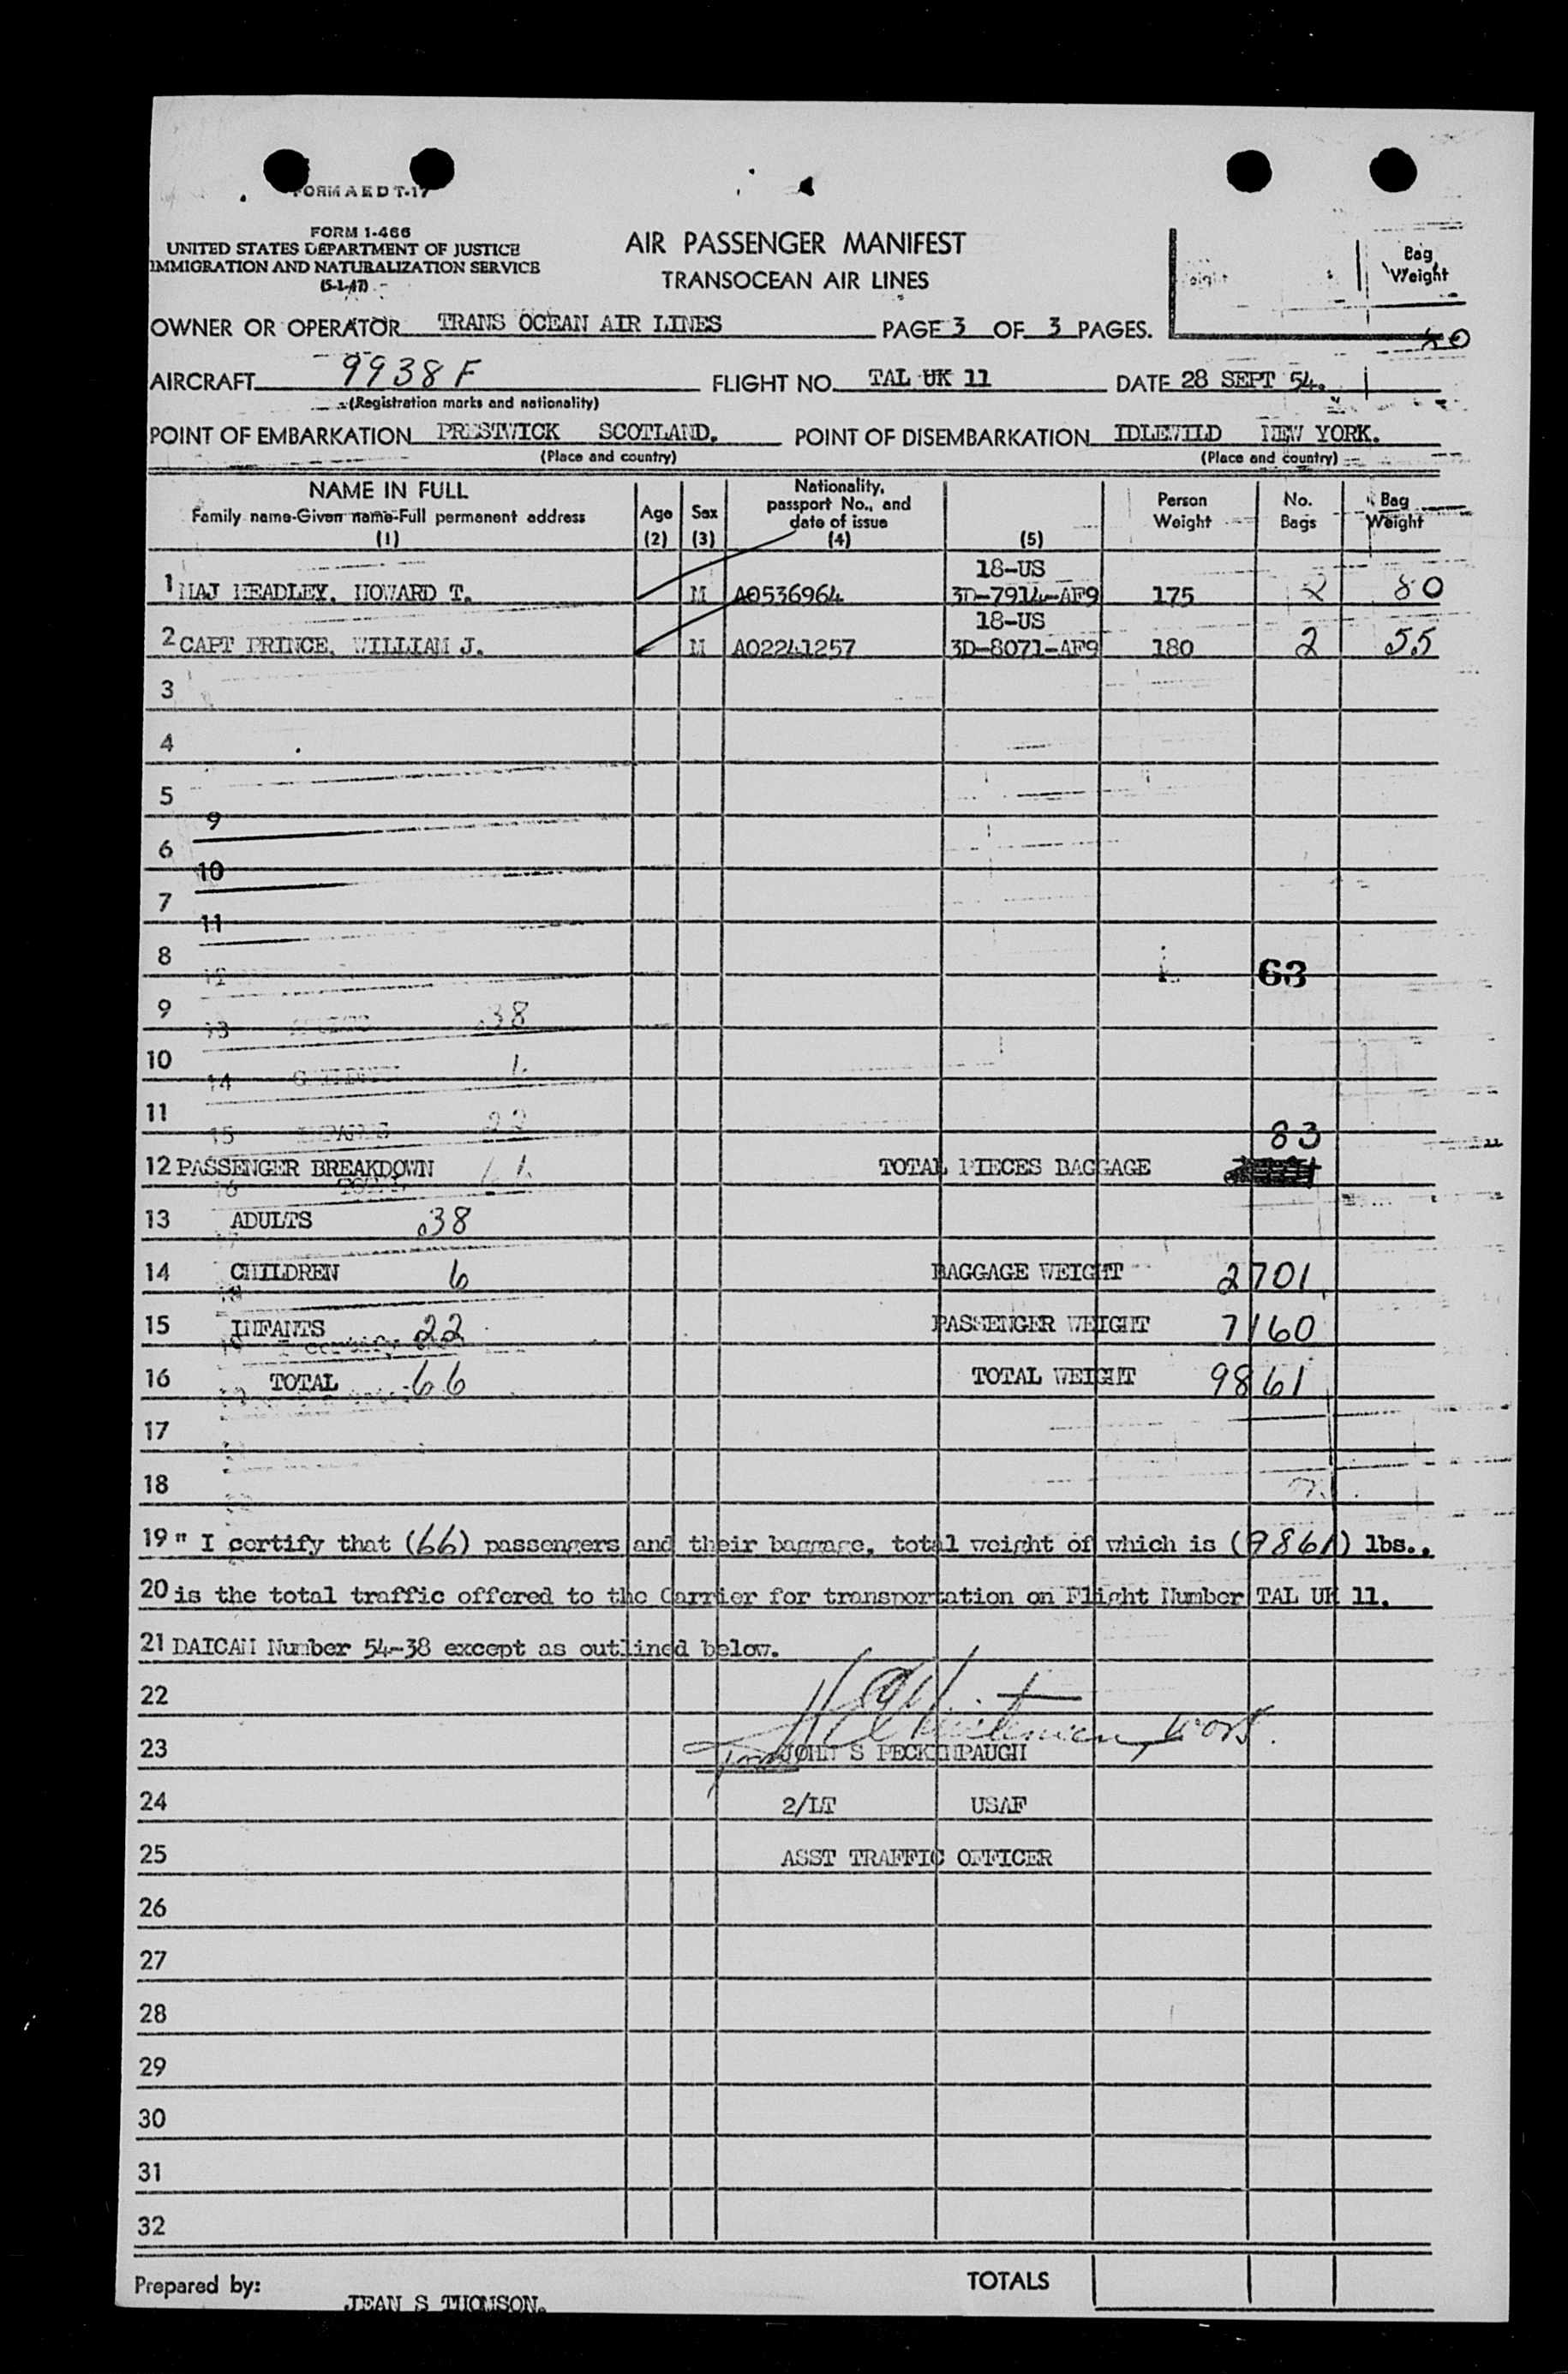 FORM A E D T-17
FORM I-466
UNITED STATES DEPARTMENT OF JUSTICE
IMMIGRATION AND NATURALIZATION SERVICE
(5-1-47)
AIR PASSENGER MANIFEST
TRANSOCEAN AIR LINES
Bag
Weight
OWNER OR OPERATOR TRANS OCEAN AIR LINES PAGE 3 OF 3 PAGES.
AIRCRAFT 9938F FLIGHT NO. TAL UK 11 DATE 28 SEPT 54.
(Registration marks and nationality)
POINT OF EMBARKATION PRESTWICK SCOTLAND. POINT OF DISEMBARKATION IDLEWILD NEW YORK.
(Place and country) (Place and country)
NAME IN FULL
Family name-Given name-Full permanent address
(1)
Age
(2)
Sex
(3)
Nationality,
passport No., and
date of issue
(4)
(5)
Person
Weight
No.
Bags
Bag
Weight
18-US
1 MAJ HEADLEY, HOWARD T. M AO536964 3D-7914-AF9 175 2 80
18-US
2 CAPT PRINCE, WILLIAM J. M AO2241257 3D-8071-AF9 180 2 55
3
4
5
9
6
10
7
11
8 63
9 38
10
14
11 22
15 83
12 PASSENGER BREAKDOWN TOTAL PIECES BAGGAGE
13 ADULTS 38
14 CHILDREN 6 BAGGAGE WEIGHT 2701
15 INFANTS 22 PASSENGER WEIGHT 7160
16 TOTAL 66 TOTAL WEIGHT 9861
17
18
19 " I certify that (66) passengers and their baggage, total weight of which is (9861) lbs.,
20 is the total traffic offered to the Carrier for transportation on Flight Number TAL UK 11.
21 DAICAM Number 54-38 except as outlined below.
22
23 JOHN S PECKINPAUGH
24 2/LT USAF
25 ASST TRAFFIC OFFICER
26
27
28
29
30
31
32
Prepared by: JEAN S THOMSON. TOTALS